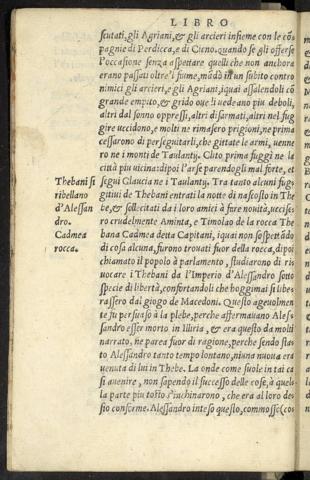 LIBRO
scutati, gli Agriani, & gli arcieri insieme con le cõ
pagnie di Perdicca, e di Cieno. quando se gli offerse
l'occasione senza aspettare quelli che non anchora
erano passati oltre'l fiume, mãdò in un subito contro
nimici gli arcieri, e gli Agriani, i quai assalendoli cõ
grande empito, & grido oue li uedeano piu deboli,
altri dal sonno oppressi, altri disarmati, altri nel fug
gire uccidono, e molti ne rimasero prigioni, ne prima
cessarono di perseguitarli, che gittate le armi, uenne
ro ne i monti de Taulantij. Clito prima fuggì ne la
città piu uicina: dipoi l'arse parendogli mal forte, et
seguì Glaucia ne i Taulantij. Tra tanto alcuni fug-
gitiui de Thebani entrati la notte di nascosto in The
be, & sollecitati da i loro amici à fare nouità, uccise
ro crudelmente Aminta, e Timolao de la rocca The
bana Cadmea detta Capitani, iquai non sospettãdo
di cosa alcuna, furono trouati fuor della rocca, dipoi
chiamato il popolo à parlamento, studiarono di ri
uocare i Thebani da l'Imperio d'Alessandro sotto
specie di libertà, confortandoli che hoggimai si libe-
rassero dal giogo de Macedoni. Questo ageuolmen
te fu persuaso à la plebe, perche affermauano Ales
sandro esser morto in Illiria, & era questo da molti
narrato, ne parea fuor di ragione, perche sendo sta
to Alessandro tanto tempo lontano, niuna nuoua era
uenuta di lui in Thebe. La onde come suole in tai ca
si auenire, non sapendo il successo delle cose, à quel-
la parte piu tosto s'inchinarono, che era al loro de-
sio conforme. Alessandro inteso questo, commosso (co
Thebani si
ribellano
d'Alessan
dro.
Cadmea
rocca.